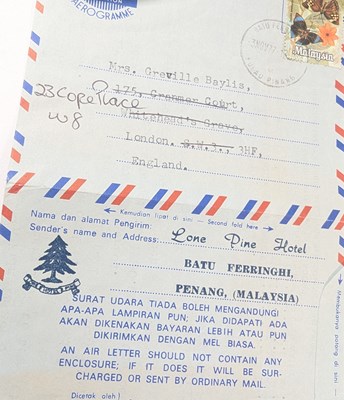 AEROGRAMME
Malaysia
Mrs. Greville Baylis,
125, Cranmer Court,
Whitehead's Grove,
London. S.W.3., 3HF,
England.
23 Cope Place
W8
← Kemudian lipat di sini — Second fold here →
Nama dan alamat Pengirim:
Sender's name and Address: Lone Pine Hotel
BATU FERRINGHI,
PENANG, (MALAYSIA)
SURAT UDARA TIADA BOLEH MENGANDUNGI
APA-APA LAMPIRAN PUN; JIKA DIDAPATI ADA
AKAN DIKENAKAN BAYARAN LEBIH ATAU PUN
DIKIRIMKAN DENGAN MEL BIASA.
AN AIR LETTER SHOULD NOT CONTAIN ANY
ENCLOSURE; IF IT DOES IT WILL BE SUR-
CHARGED OR SENT BY ORDINARY MAIL.
Dicetak oleh